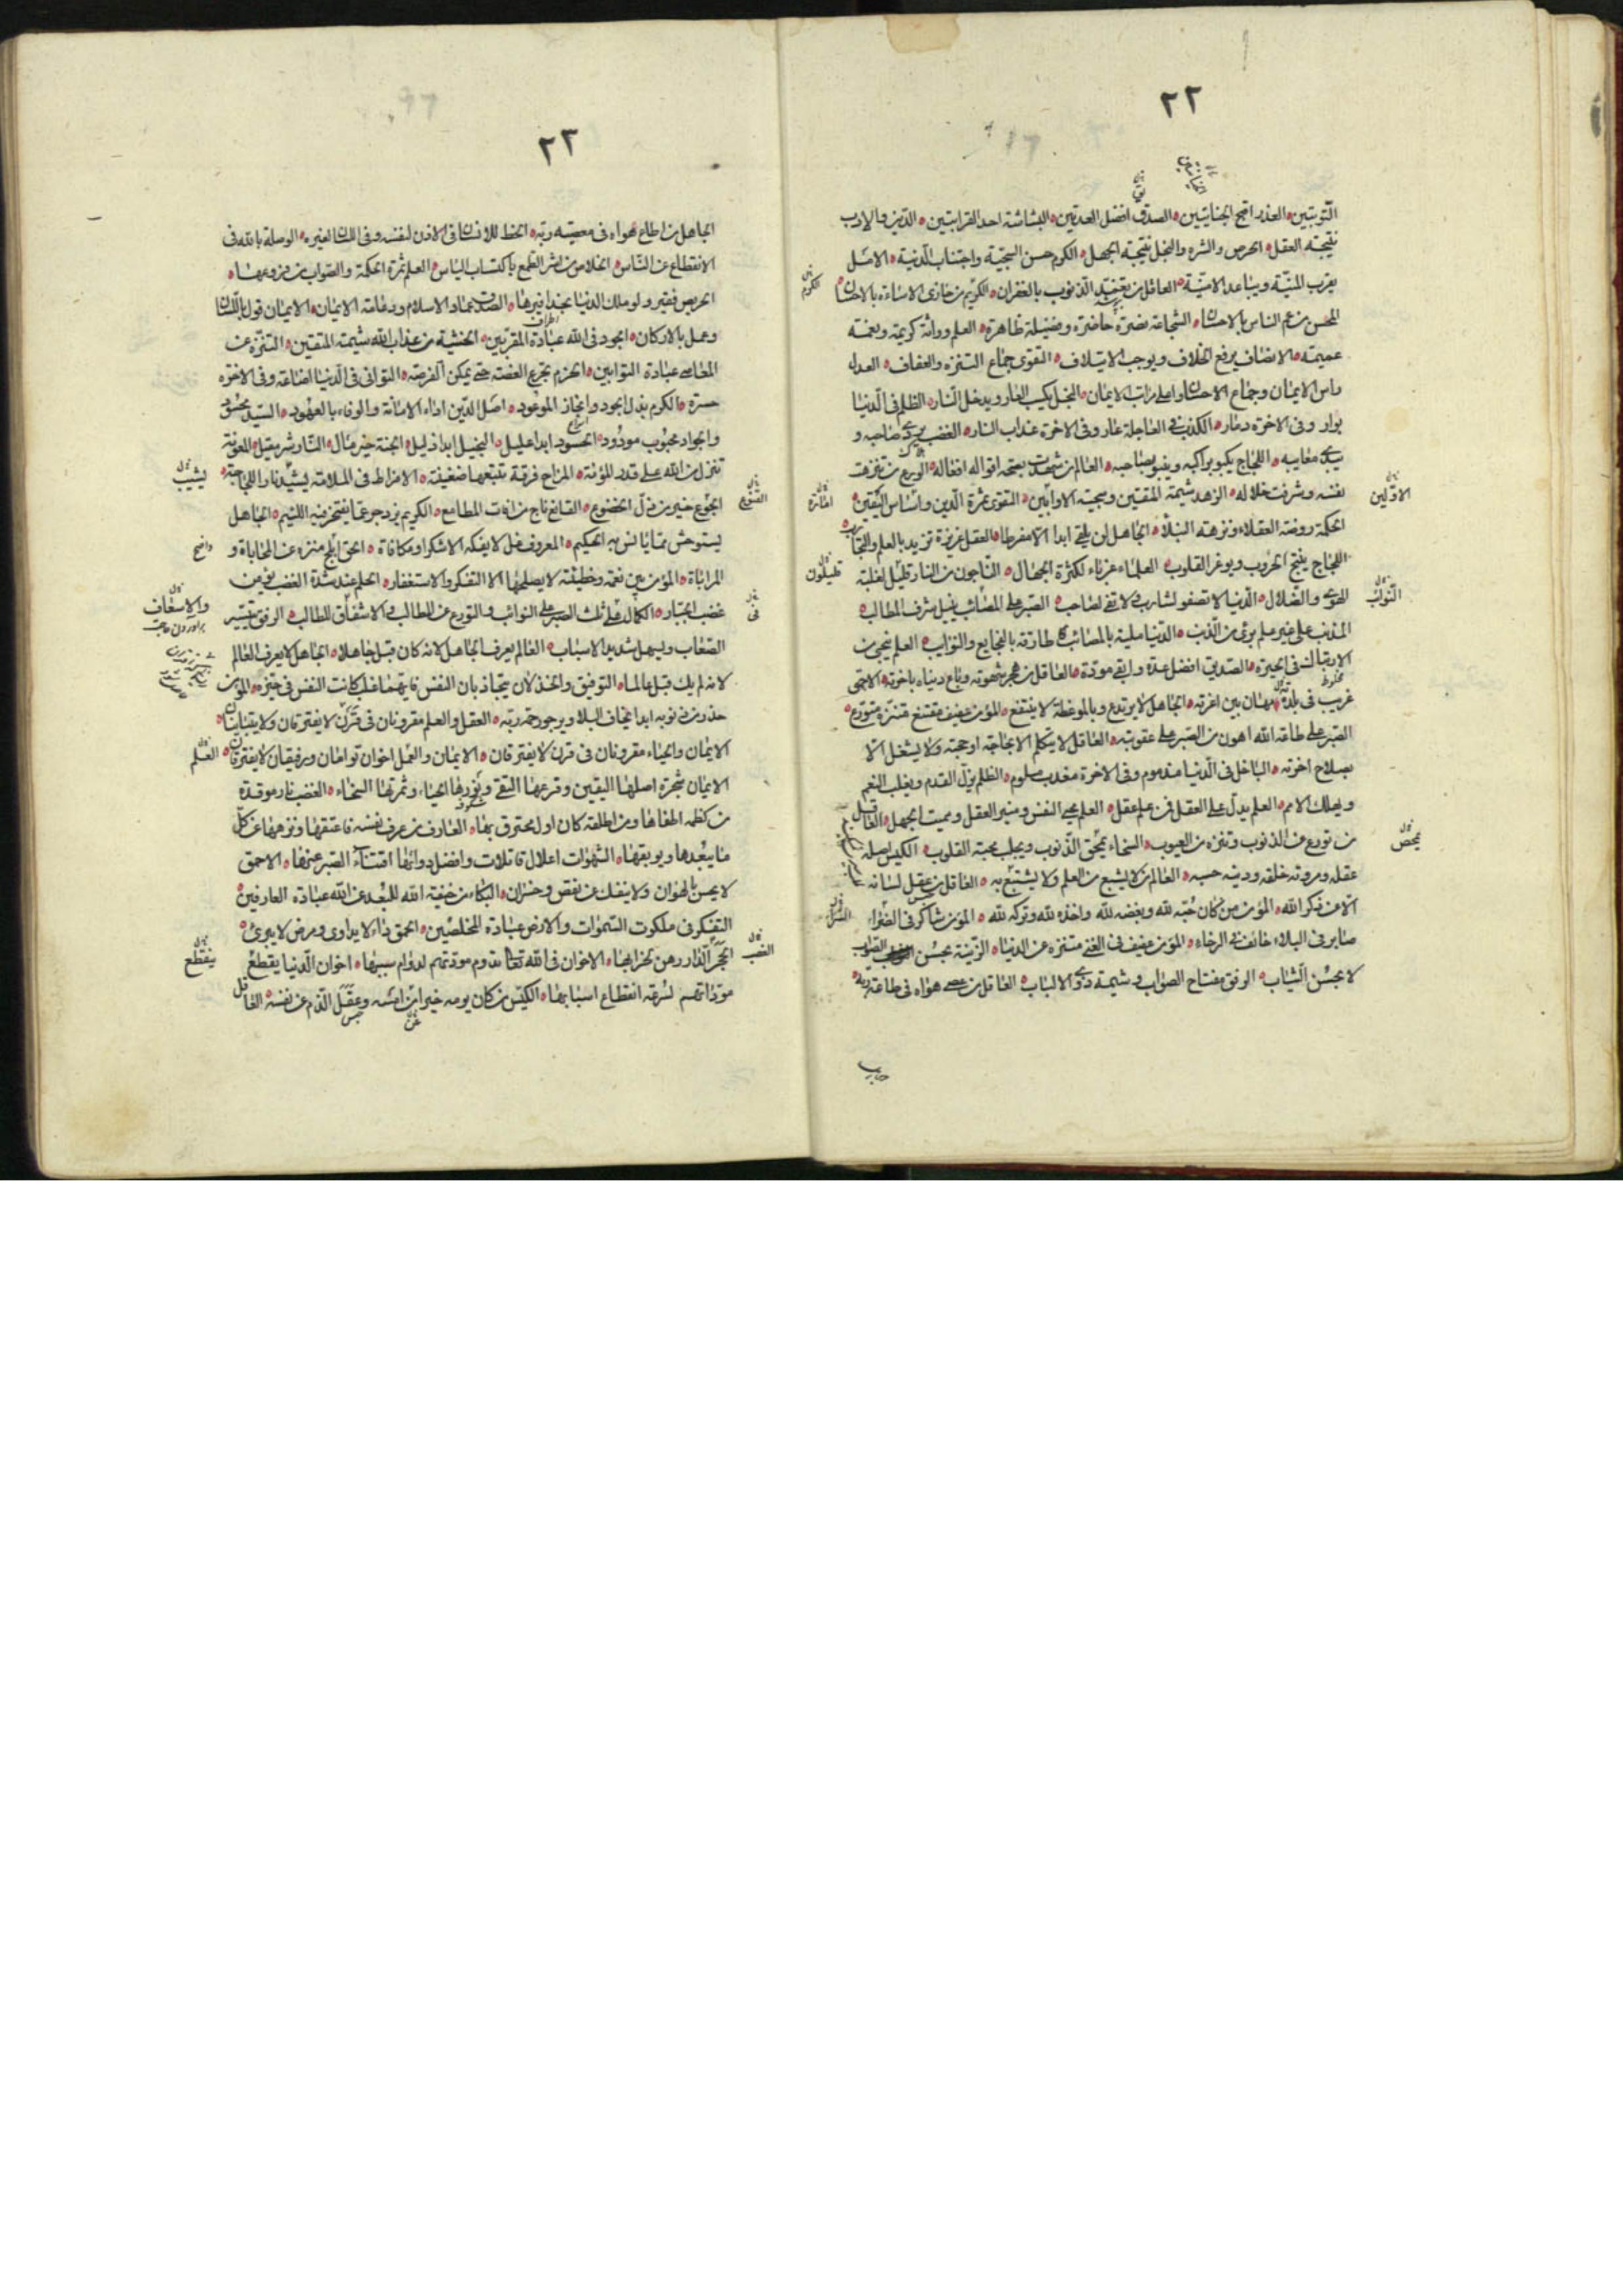 ٢٢
التوبتين العذر اقبح الجنايتين الصدق افضل العدتين البشاشة احد القرابتين الدين والادب
نتيجة العقل الحرص والشره والبخل نتيجة الجهل الكرم حسن السجية واجتناب الدنية الامل
يقرب المنية ويباعد الامنية العاقل من يتغمد الذنوب بالغفران الكريم من جازى الاساءة بالاحسان
المحسن من عم الناس بالاحسان الشجاعة نصرة حاضرة وفضيلة ظاهرة العلم وراثة كريمة ونعمة
عميمة الانصاف يرفع الخلاف ويوجب الايتلاف التقوى جماع التنزه والعفاف العدل
راس الايمان وجماع الاحسان واعلى مراتب الايمان البخل يكسب العار ويدخل النار الظلم في الدنيا
بوار وفي الاخرة دمار الكذب في العاجلة عار وفي الاخرة عذاب النار الغضب يردي صاحبه و
يبدي معايبه اللجاج يكبو براكبه وينبو بصاحبه العالم من شهدت بصحة اقواله افعاله الورع من نزهت
نفسه وشرفت خلاله الزهد شيمة المتقين وسجية الاوابين التقوى ثمرة الدين وامارة اليقين
الحكمة روضة العقلاء ونزهة النبلاء الجاهل لن يلقى ابدا الا مفرطا العقل غريزة تزيد بالعلم والتجارب
اللجاج ينتج الحروب ويوغر القلوب العلماء غرباء لكثرة الجهال الناجون من النار قليل لغلبة
الهوى والضلال الدنيا لا تصفو لشارب ولا تفي لصاحب الصبر على المصائب ينيل شرف المطالب
المذنب على غير علم بريء من الذنب الدنيا مليئة بالمصائب طارقة بالفجايع والنوايب العلم ينجي من
الارتباك في الحيرة الصديق افضل عدة وابقى مودة العاقل من هجر شهوته وباع دنياه باخرته الاحمق
غريب في بلدته مهان بين اعزته الجاهل لا يرتدع وبالموعظة لا ينتفع المؤمن عفيف مقتنع متنزه متورع
الصبر على طاعة الله اهون من الصبر على عقوبته العاقل لا يتكلم الا بحاجته او حجته ولا يشتغل الا
بصلاح اخرته الباخل في الدنيا مذموم وفي الاخرة معذب ملوم الظلم يزل القدم ويغلب النعم
ويهلك الامم العلم يدل على العقل فمن علم عقل العلم محيي النفس ومنير العقل ومميت الجهل العاقل
من تورع عن الذنوب وتنزه من العيوب السخاء يمحق الذنوب ويجلب محبة القلوب الكيس اصله
عقله ومروته خلقه ودينه حسبه العالم من لا يشبع من العلم ولا يتشبع به العاقل من عقل لسانه
الا عن ذكر الله المؤمن من كان حبه لله وبغضه لله واخذه لله وتركه لله المؤمن شاكر في الضراء
صابر في البلاء خائف في الرخاء المؤمن عفيف في الغنى متنزه عن الدنيا الزينة بحسن الصواب
لا بحسن الثياب الرفق مفتاح الصواب وشيمة ذوي الالباب العاقل من عصى هواه في طاعة ربه
الكرم
الاولين
امارة
قليلون
النوائب
يمحص
السراء
٢٣
الجاهل من اطاع هواه في معصية ربه الحظ للانسان في الاذن لنفسه وفي اللسان لغيره الوصلة بالله في
الانقطاع عن الناس الخلاص من اسر الطمع باكتساب الياس العلم ثمرة الحكمة والصواب من فروعها
الحريص فقير ولو ملك الدنيا بحذافيرها الصدق عماد الاسلام ودعامة الايمان الايمان قول باللسان
وعمل بالاركان الجود في الله عبادة المقربين الخشية من عذاب الله شيمة المتقين التنزه عن
المعاصي عبادة التوابين الحزم تجرع الغصة حتى يمكن الفرصة التواني في الدنيا اضاعة وفي الاخرة
حسرة الكرم بذل الجود وانجاز الموعود اصل الدين اداء الامانة والوفاء بالعهود السيد محسود
والجواد محبوب مودود الحسود ابدا عليل البخيل ابدا ذليل الجنة خير مال النار شر مقيل المعونة
تنزل من الله على قدر المؤنة المزاح فرقة تتبعها ضغينة الافراط في الملامة يشب نار اللجاجة
الجوع خير من ذل الخضوع القانع ناج من افات المطامع الكريم يزدجر عما يفتخر فيه اللئيم الجاهل
يستوحش مما يانس به الحكيم المعروف غل لا يفكه الا شكر او مكافاة الحق ابلج منزه عن المحاباة و
المراياة المؤمن بين نعمة وخطيئة لا يصلحها الا الشكر والاستغفار الحلم عند شدة الغضب يؤمن
غضب الجبار الكمال في ثلث الصبر على النوائب والتورع عن المطالب والاشفاق للطالب الرفق تيسير
الصعاب ويسهل شديد الاسباب العالم يعرف الجاهل لانه كان قبل جاهلا الجاهل لا يعرف العالم
لانه لم يك قبل عالما التوفيق والخذلان يتجاذبان النفس فايهما غلب كانت النفس في حيزه المؤمن
حذر من ذنوبه ابدا يخاف البلاء ويرجو رحمة ربه العقل والعلم مقرونان في قرن لا يفترقان ولا يتباينان
الايمان والحياء مقرونان في قرن لا يفترقان الايمان والعمل اخوان توامان ورفيقان لا يفترقان
الايمان شجرة اصلها اليقين وفرعها التقى ونورها الحياء وثمرتها السخاء الغضب نار موقدة
من كظمه اطفاها ومن اطلقه كان اول محترق بها العارف من عرف نفسه فاعتقها ونزهها عن كل
ما يبعدها ويوبقها الشهوات اعلال قاتلات وافضل دوائها اقتناء الصبر عنها الاحمق
لا يحسن بالهوان ولا ينفك عن نقص وخسران البكاء من خيفة الله للبعد عن الله عبادة العارفين
التفكر في ملكوت السموات والارض عبادة المخلصين الحمق داء لا يداوى ومرض لا يبرئ
الحجر في الدار رهن بخرابها الاخوان في الله تعالى تدوم مودتهم لدوام سببها اخوان الدنيا يقطع
موداتهم لسرعة انقطاع اسبابها الكيس من كان يومه خيرا من امسه وعقل الذم عن نفسه العاقل
القنوع
يشيب
في
والاسعاف
العلم
الغصب
ينقطع